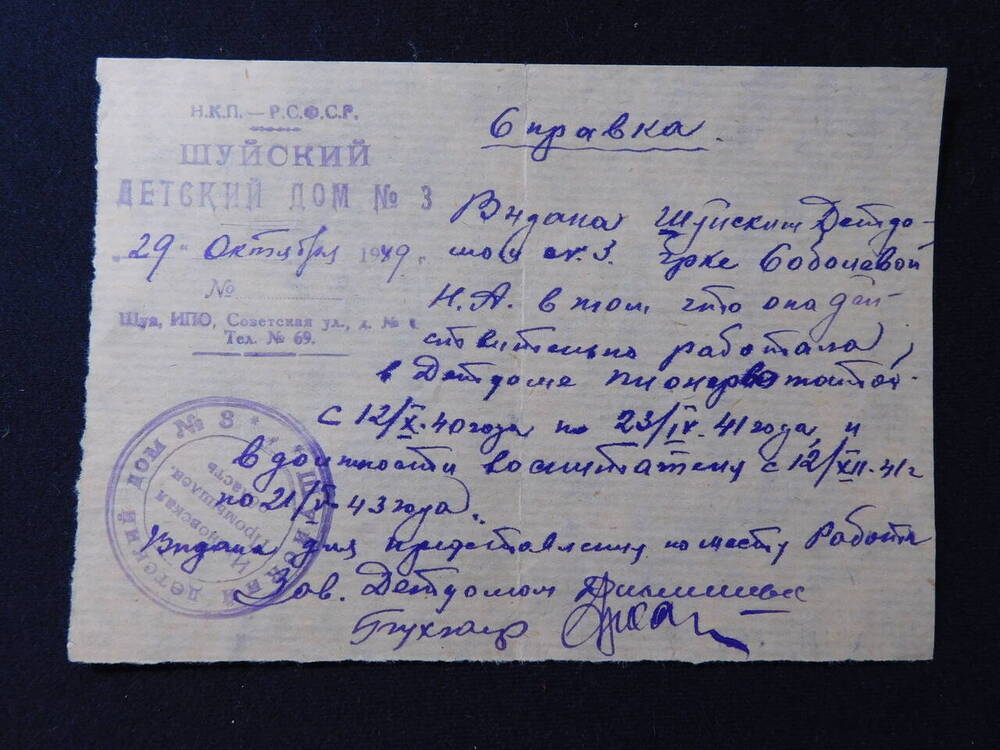 Н.К.П. — Р.С.Ф.С.Р.
ШУЙСКИЙ
ДЕТСКИЙ ДОМ № 3
„29" Октября 1949 г.
№
Шуа, ИПО, Советская ул., д. №
Тел. № 69.
Справка.
Выдана Шуйским Детдо-
мом № 3. Соболевой
Н. А. в том что она дей-
ствительно работала
в Детдоме пионервожатой
с 12/X-40 года по 23/IV-41 года, и
в должности воспитателя с 12/XII-41 г
по 21/V-43 года.
Выдана для представления по месту работы
Зав. Детдомом
Бухгалтер
ШУЙСКИЙ ДЕТСКИЙ ДОМ № 3
Ивановская
Промышлен.
область